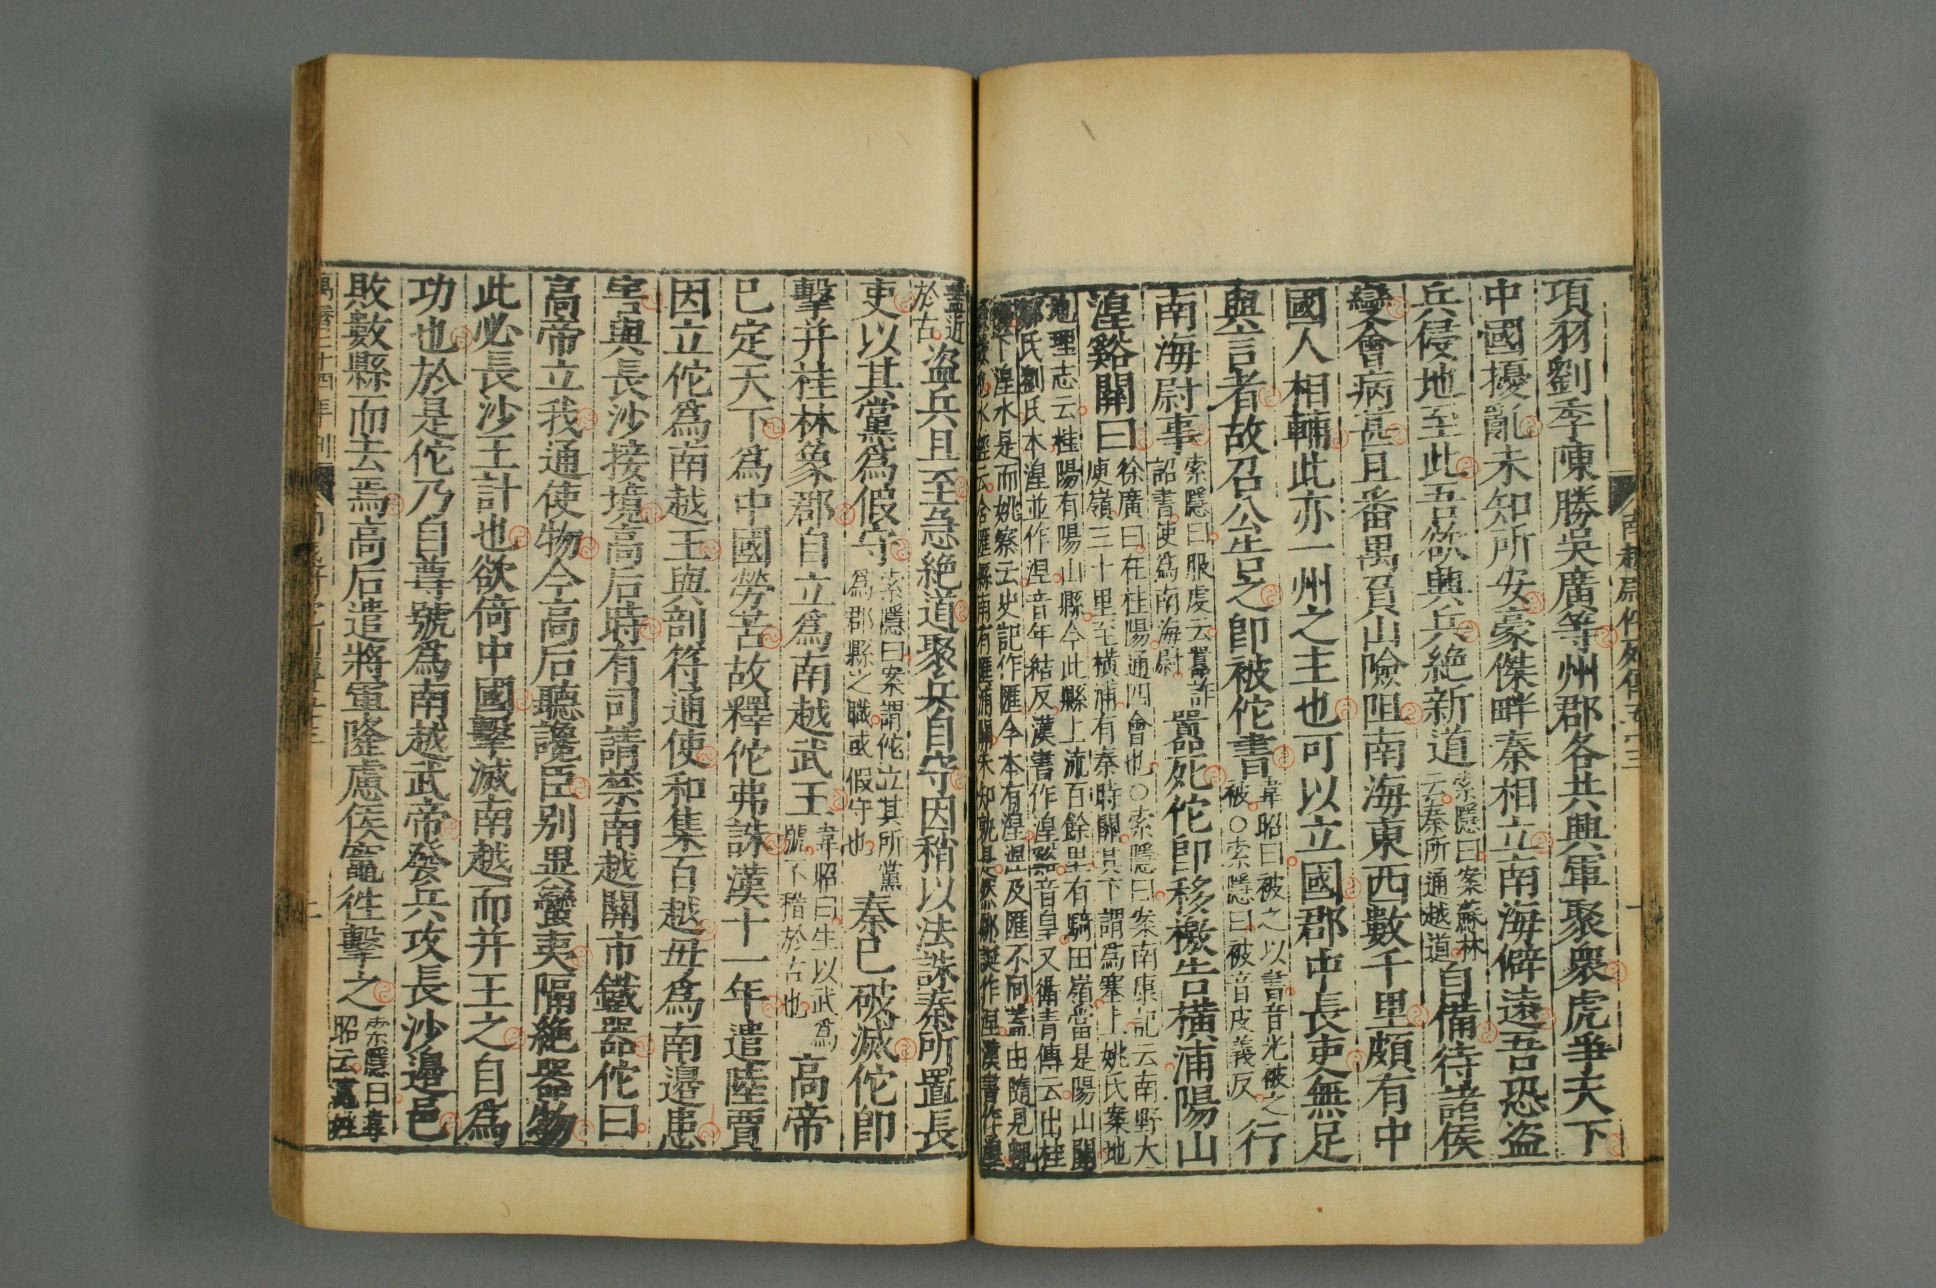 項羽劉季陳勝吳廣等州郡各共興軍聚衆虎爭天下
中國擾亂未知所安豪傑畔秦相立南海僻遠吾恐盜
兵侵地至此吾欲興兵絶新道索隱曰案蘇林云秦所通越道自備待諸侯
變會病甚且番禺負山險阻南海東西數千里頗有中
國人相輔此亦一州之主也可以立國郡中長吏無足
與言者故召公告之卽被佗書韋昭曰被之以書音光被之被○索隱曰被音皮義反行
南海尉事索隱曰服虔云囂詐詔書使爲南海尉囂死佗卽移檄告橫浦陽山
湟谿關曰徐廣曰在桂陽通四會也○索隱曰案南康記云南野大庾嶺三十里至橫浦有秦時關其下謂爲塞上姚氏案地
地理志云桂陽有陽山縣今此縣上流百餘里有騎田嶺當是陽山關
氏劉氏本湟並作湼音年結反漢書作湟谿音皇又衞青傳云出桂
下湟水是而姚察云史記作匯今本有湟湼及匯不同蓋由隨見輒
水經云含匯縣南有匯浦關未知孰是然鄒誕作湼漢書作湟
盖近於古盜兵且至急絶道聚兵自守因稍以法誅秦所置長
吏以其黨爲假守索隱曰案謂佗立其所黨爲郡縣之職或假守也秦已破滅佗卽
擊并桂林象郡自立爲南越武王韋昭曰生以武爲號不稽於古也高帝
已定天下爲中國勞苦故釋佗弗誅漢十一年遣陸賈
因立佗爲南越王與剖符通使和集百越毋爲南邊患
害與長沙接境高后時有司請禁南越關市鐵器佗曰
高帝立我通使物今高后聽讒臣別異蠻夷隔絶器物
此必長沙王計也欲倚中國擊滅南越而并王之自爲
功也於是佗乃自尊號爲南越武帝發兵攻長沙邊邑
敗數縣而去焉高后遣將軍隆慮侯竈徃擊之索隱曰韋昭云竈姓
萬曆二十四年刊